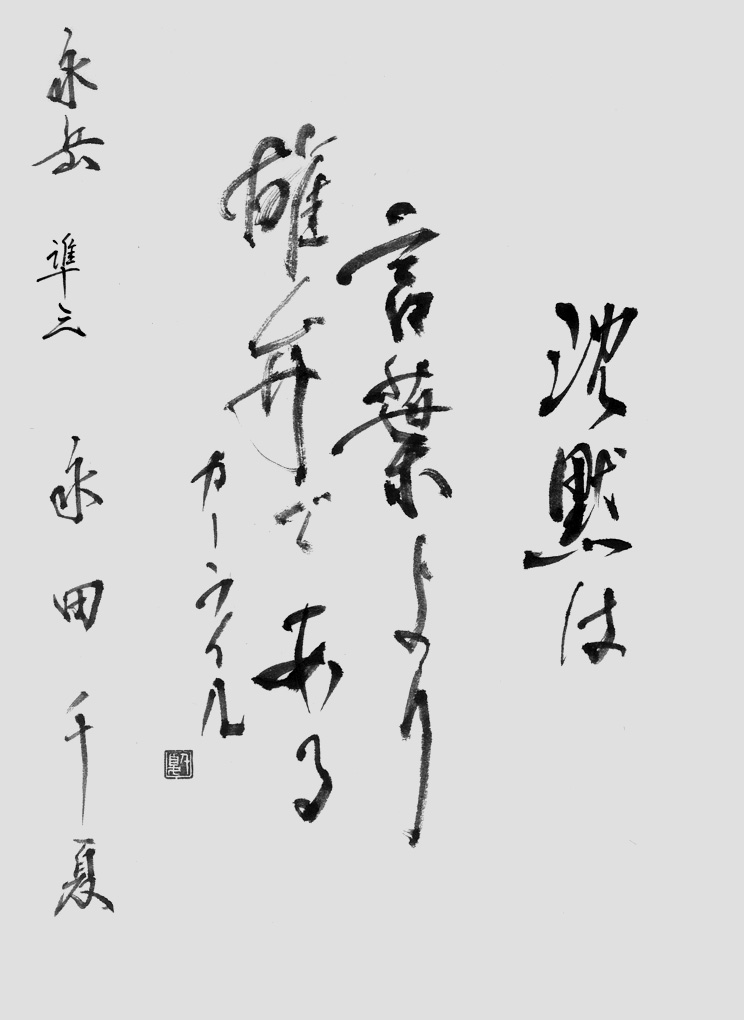 沈黙は
言葉より
雄弁である
カーライル
永岳 準三 永田千夏